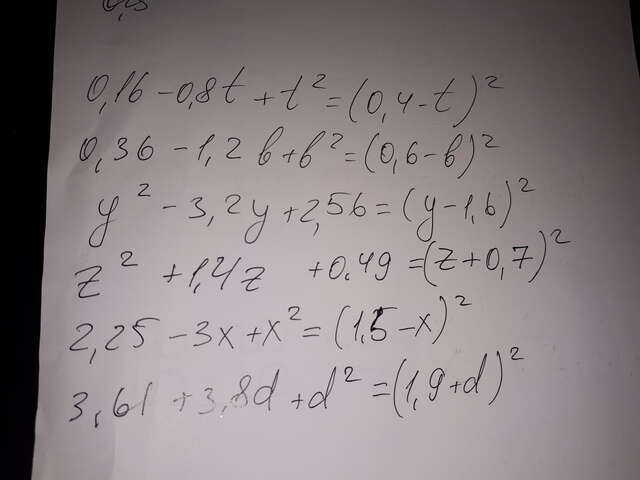 0,16 - 0,8t + t² = (0,4 - t)²
0,36 - 1,2b + b² = (0,6 - b)²
y² - 3,2y + 2,56 = (y - 1,6)²
z² + 1,4z + 0,49 = (z + 0,7)²
2,25 - 3x + x² = (1,5 - x)²
3,61 + 3,8d + d² = (1,9 + d)²